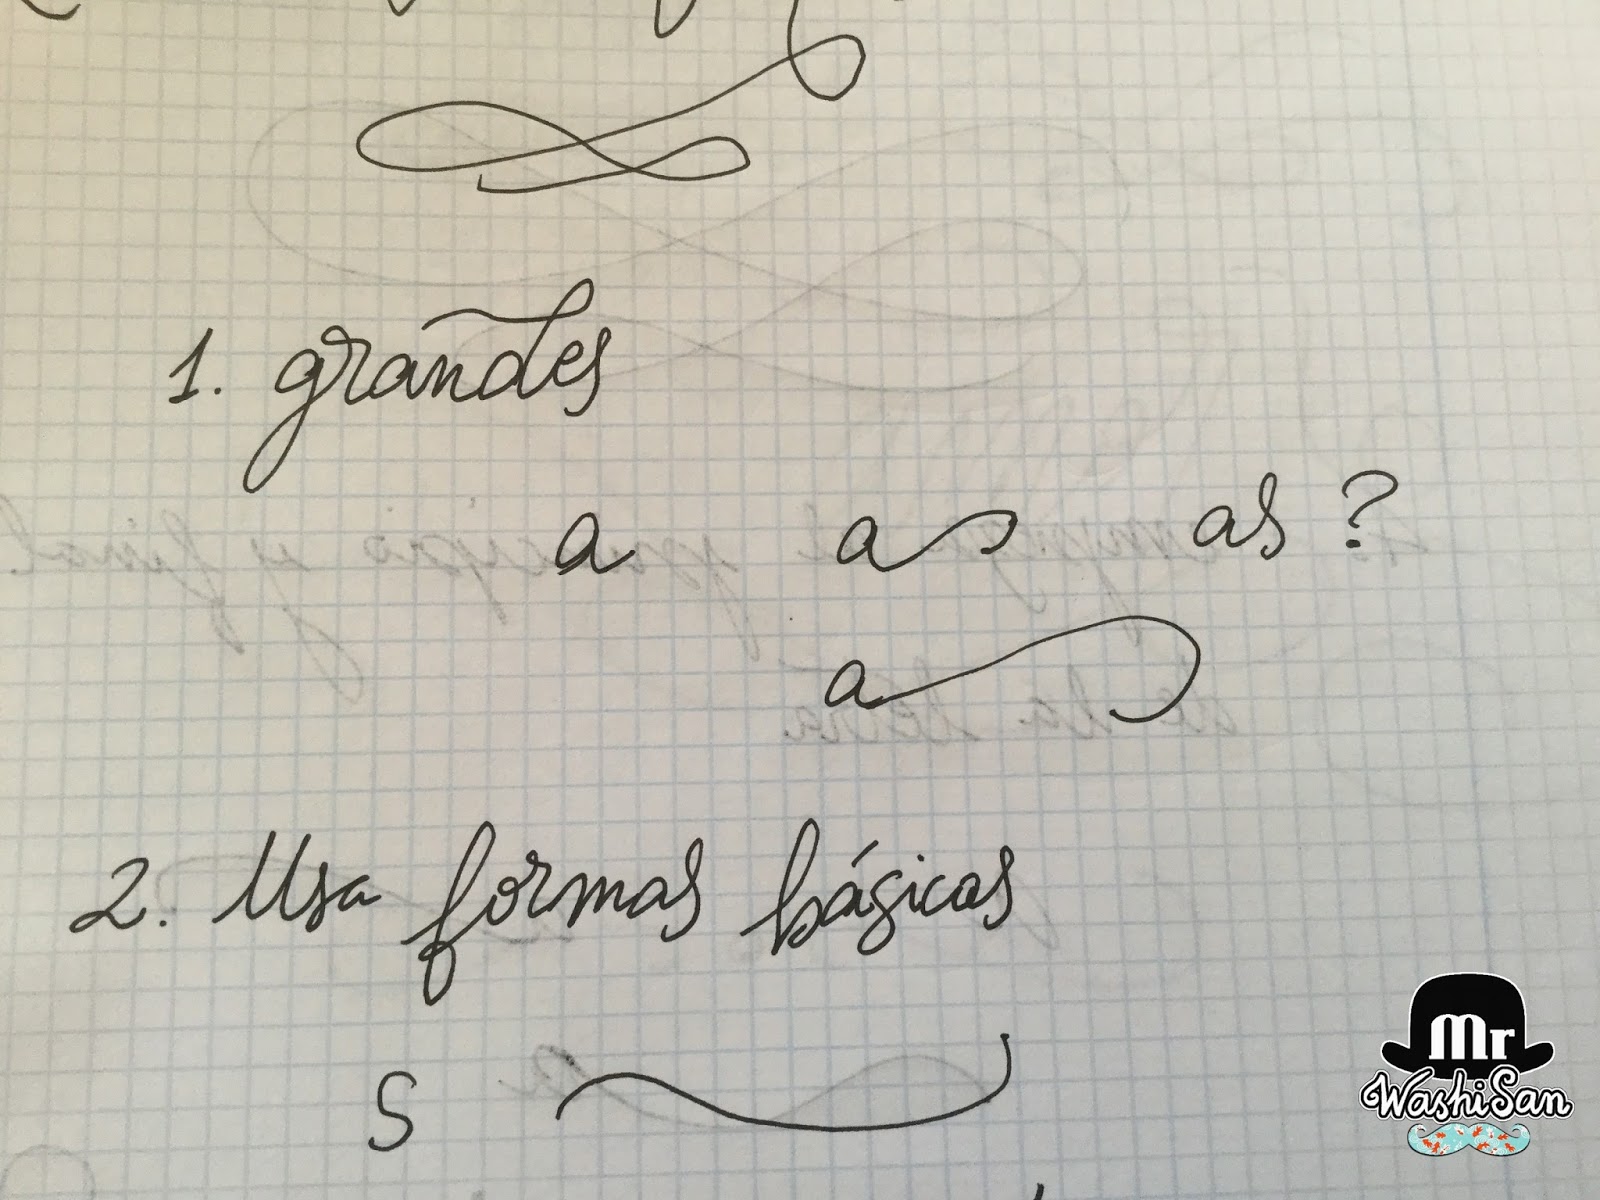 1. grandes
a a as ?
a
2. Usa formas básicas
S
Mr
WashiSan